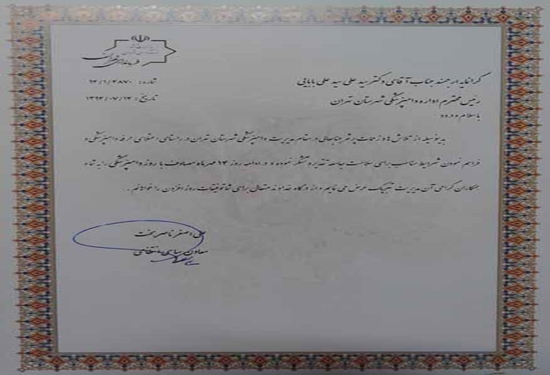 شماره: ۹۲/۱/۴۸۷۰
تاریخ: ۱۳۹۲/۰۷/۱۴
گرانمایه ارجمند جناب آقای دکتر سید علی سید علی بابایی
رئیس محترم اداره دامپزشکی شهرستان تهران
با سلام و درود
بدینوسیله از تلاش ها و زحمات پرثمر جنابعالی در مقام مدیریت دامپزشکی شهرستان تهران در راستای اعتلای حرفه دامپزشکی و
فراهم نمودن شرایط مناسب برای سلامت جامعه تقدیر و تشکر نموده و در ادامه روز ۱۴ مهر ماه مصادف با روز دامپزشکی را به شما و
همکاران گرامی آن مدیریت تبریک عرض می نمایم و از درگاه خداوند متعال برای شما توفیقات روز افزون را خواهانم.
علی اصغر ناصربخت
معاون سیاسی انتظامی